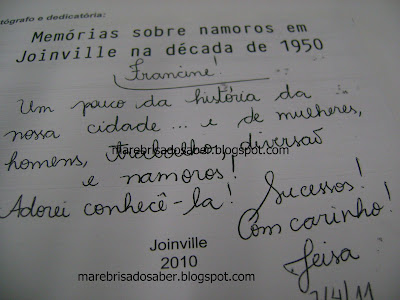 tógrafo e dedicatória:
Memórias sobre namoros em
Joinville na década de 1950
Francine!
Um pouco da história da
nossa cidade... e de mulheres,
homens, trabalho, diversão
marebrisadosaber.blogspot.com
e namoros!
Adorei conhecê-la! Sucessos!
Com carinho!
Joinville
2010
Geisa
marebrisadosaber.blogspot.com
/4/11